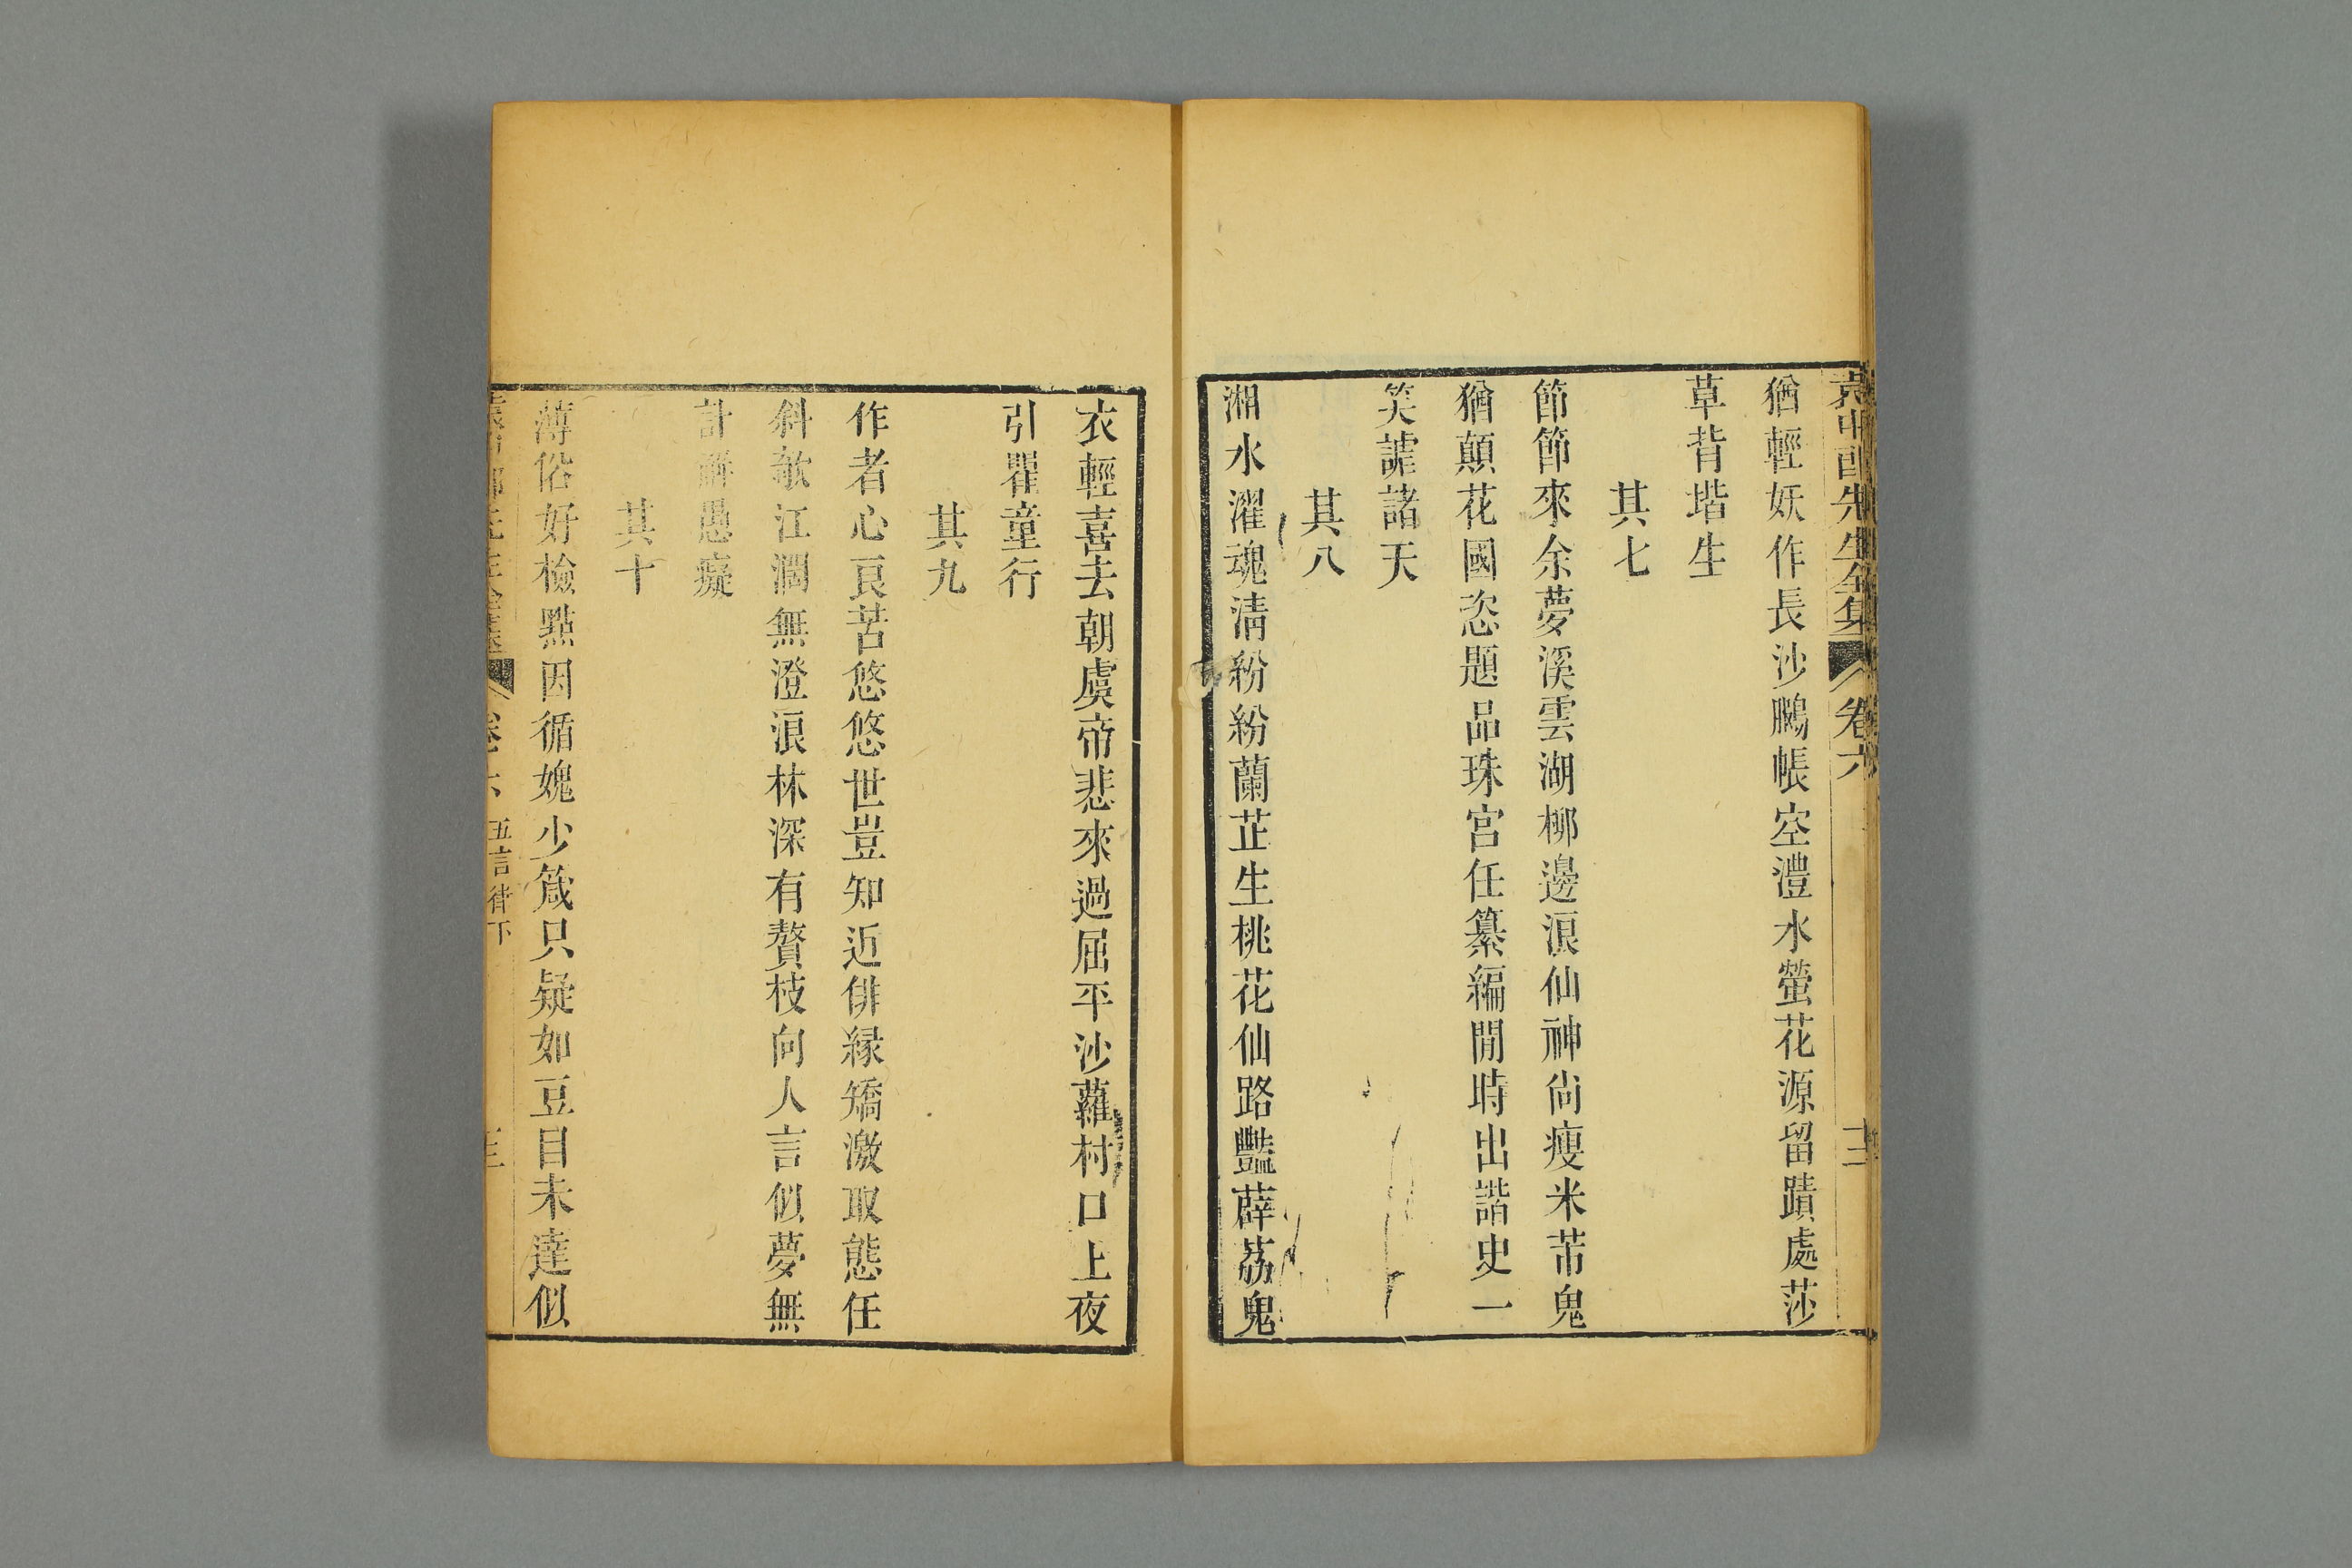 袁中郎先生全集 卷六
猶輕妖作長沙鵩帳空澧水螢花源留蹟處莎
草背堦生
其七
節節來余夢溪雲湖柳邊浪仙神尙瘦米芾鬼
猶顛花國恣題品珠宮任纂編閒時出諧史一
笑謔諸天
其八
湘水濯魂淸紛紛蘭芷生桃花仙路豔薜荔鬼
衣輕喜去朝虞帝悲來過屈平沙蘿村口上夜
引瞿童行
其九
作者心良苦悠悠世豈知近俳緣矯激取態任
斜欹江濶無澄浪林深有贅枝向人言似夢無
計辭愚癡
其十
薄俗好檢點因循媿少箴只疑如豆目未達似
卷六 五言律下